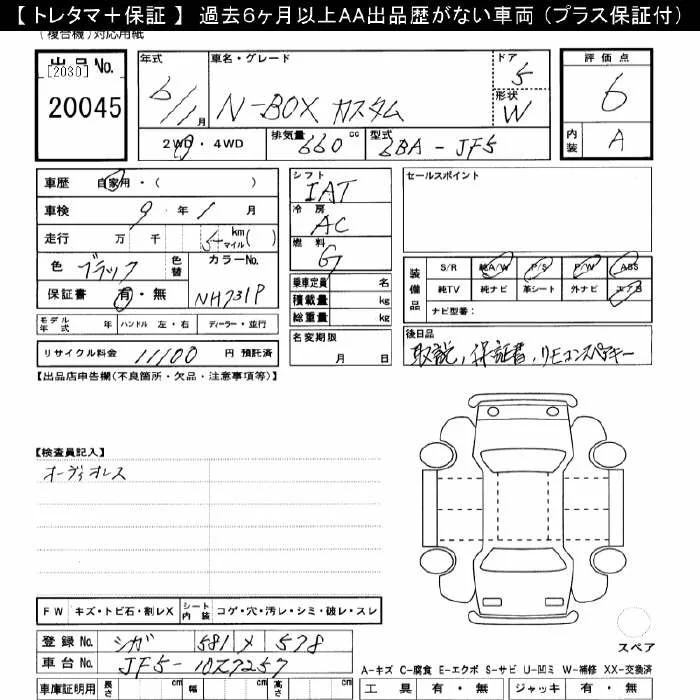 【 トレタマ＋保証 】 過去6ヶ月以上AA出品歴がない車両（プラス保証付）
（複合機）対応用紙
出品No. [2030] 20045
年式 6/11月
車名・グレード N-BOX カスタム
ドア 5
形状 W
評価点 6
内装 A
2WD・4WD 排気量 660cc 型式 6BA-JF5
車歴 自家用・( )
車検 9年1月
走行 万 千 5 km マイル( )
色 ブラック 色替 カラーNo. NH731P
保証書 有・無
モデル年式 年 ハンドル 左・右 ディーラー・並行
リサイクル料金 11100 円 預託済
シフト IAT
冷房 AC
燃料 G
乗車定員 名
積載量 kg
総重量 kg
名変期限 月 日
セールスポイント
装備品 S/R 純A/W P/S P/W ABS
純TV 純ナビ 革シート 外ナビ エアB
ナビ型番：
後日品
取説、保証書、リモコンスペアキー
【出品店申告欄(不良箇所・欠品・注意事項等)】
【検査員記入】
オーディオレス
FW キズ・トビ石・割レX シート内装 コゲ・穴・汚レ・シミ・破レ・スレ
登録No. シガ 581 メ 578
車台No. JF5-1027257
車庫証明用 長さ cm 幅 cm 高さ cm
スペア
A-キズ C-腐食 E-エクボ S-サビ U-凹ミ W-補修 XX-交換済
工具 有・無 ジャッキ 有・無